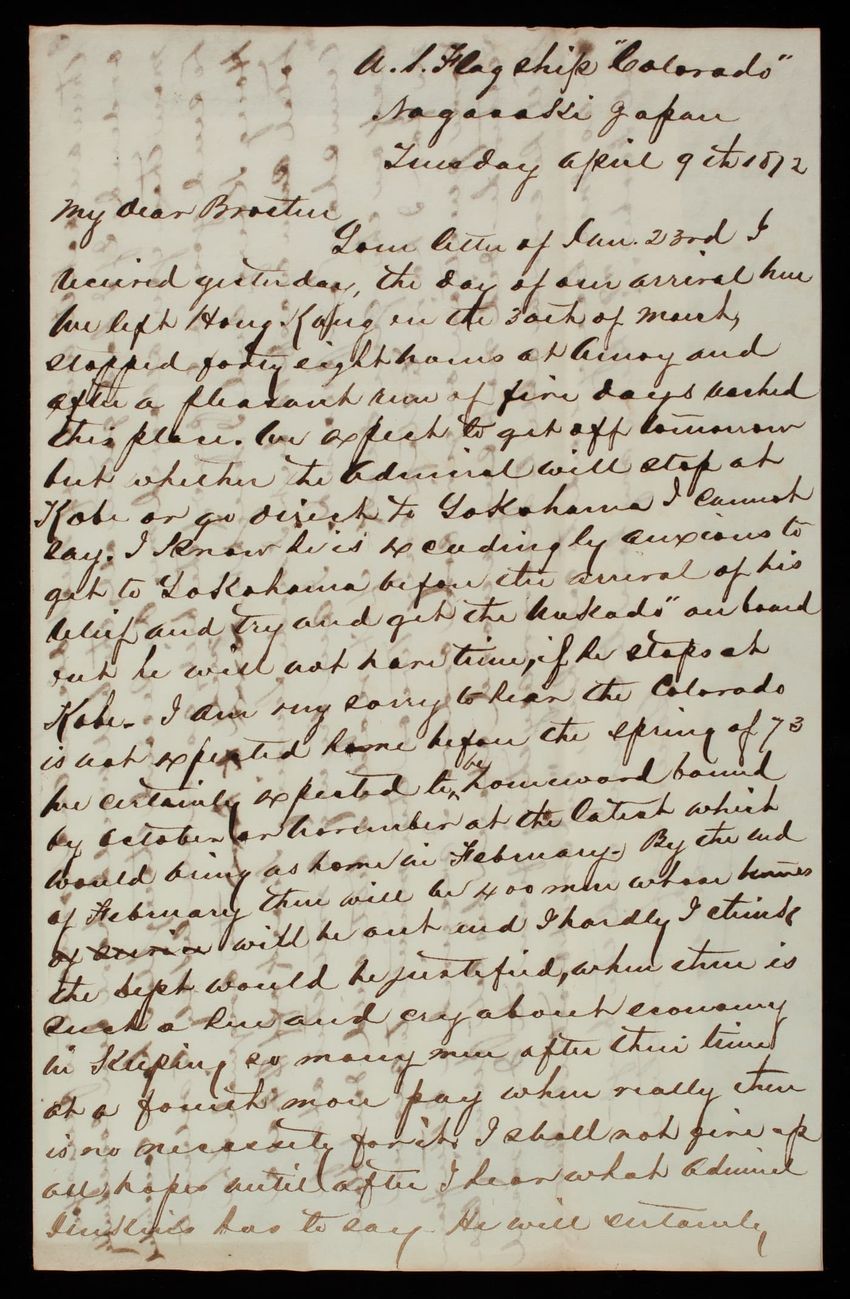 U.S. Flag ship "Colorado"
Nagasaki Japan
Tuesday April 9th 1872
My dear Brother
Your letter of Jan. 23rd I
received yesterday, the day of our arrival here
We left Hong Kong on the 30th of March,
stopped forty eight hours at Amoy and
after a pleasant run of five days reached
this place. We expect to get off tomorrow
but whether the Admiral will stop at
Kobe or go direct to Yokohama I cannot
say. I Know he is exceedingly anxious to
get to Yokohama before the arrival of his
relief and try and get the Mikado" on board
but he will not have time, if he stops at
Kobe. I am very sorry to hear the Colorado
is not expected home before the spring of 73
We certainly expected to be homeward bound
by October or November at the latest which
would bring us home in February. By the end
of February there will be 400 men whose times
of service will be out and I hardly I think
the Dept would be justified, when there is
such a hue and cry about economy
in Keeping so many men after their times
at a fourth more pay when really there
is no necessity for it. I shall not give up
all hopes until after I hear what Admiral
Jenkins has to say. He will certainly